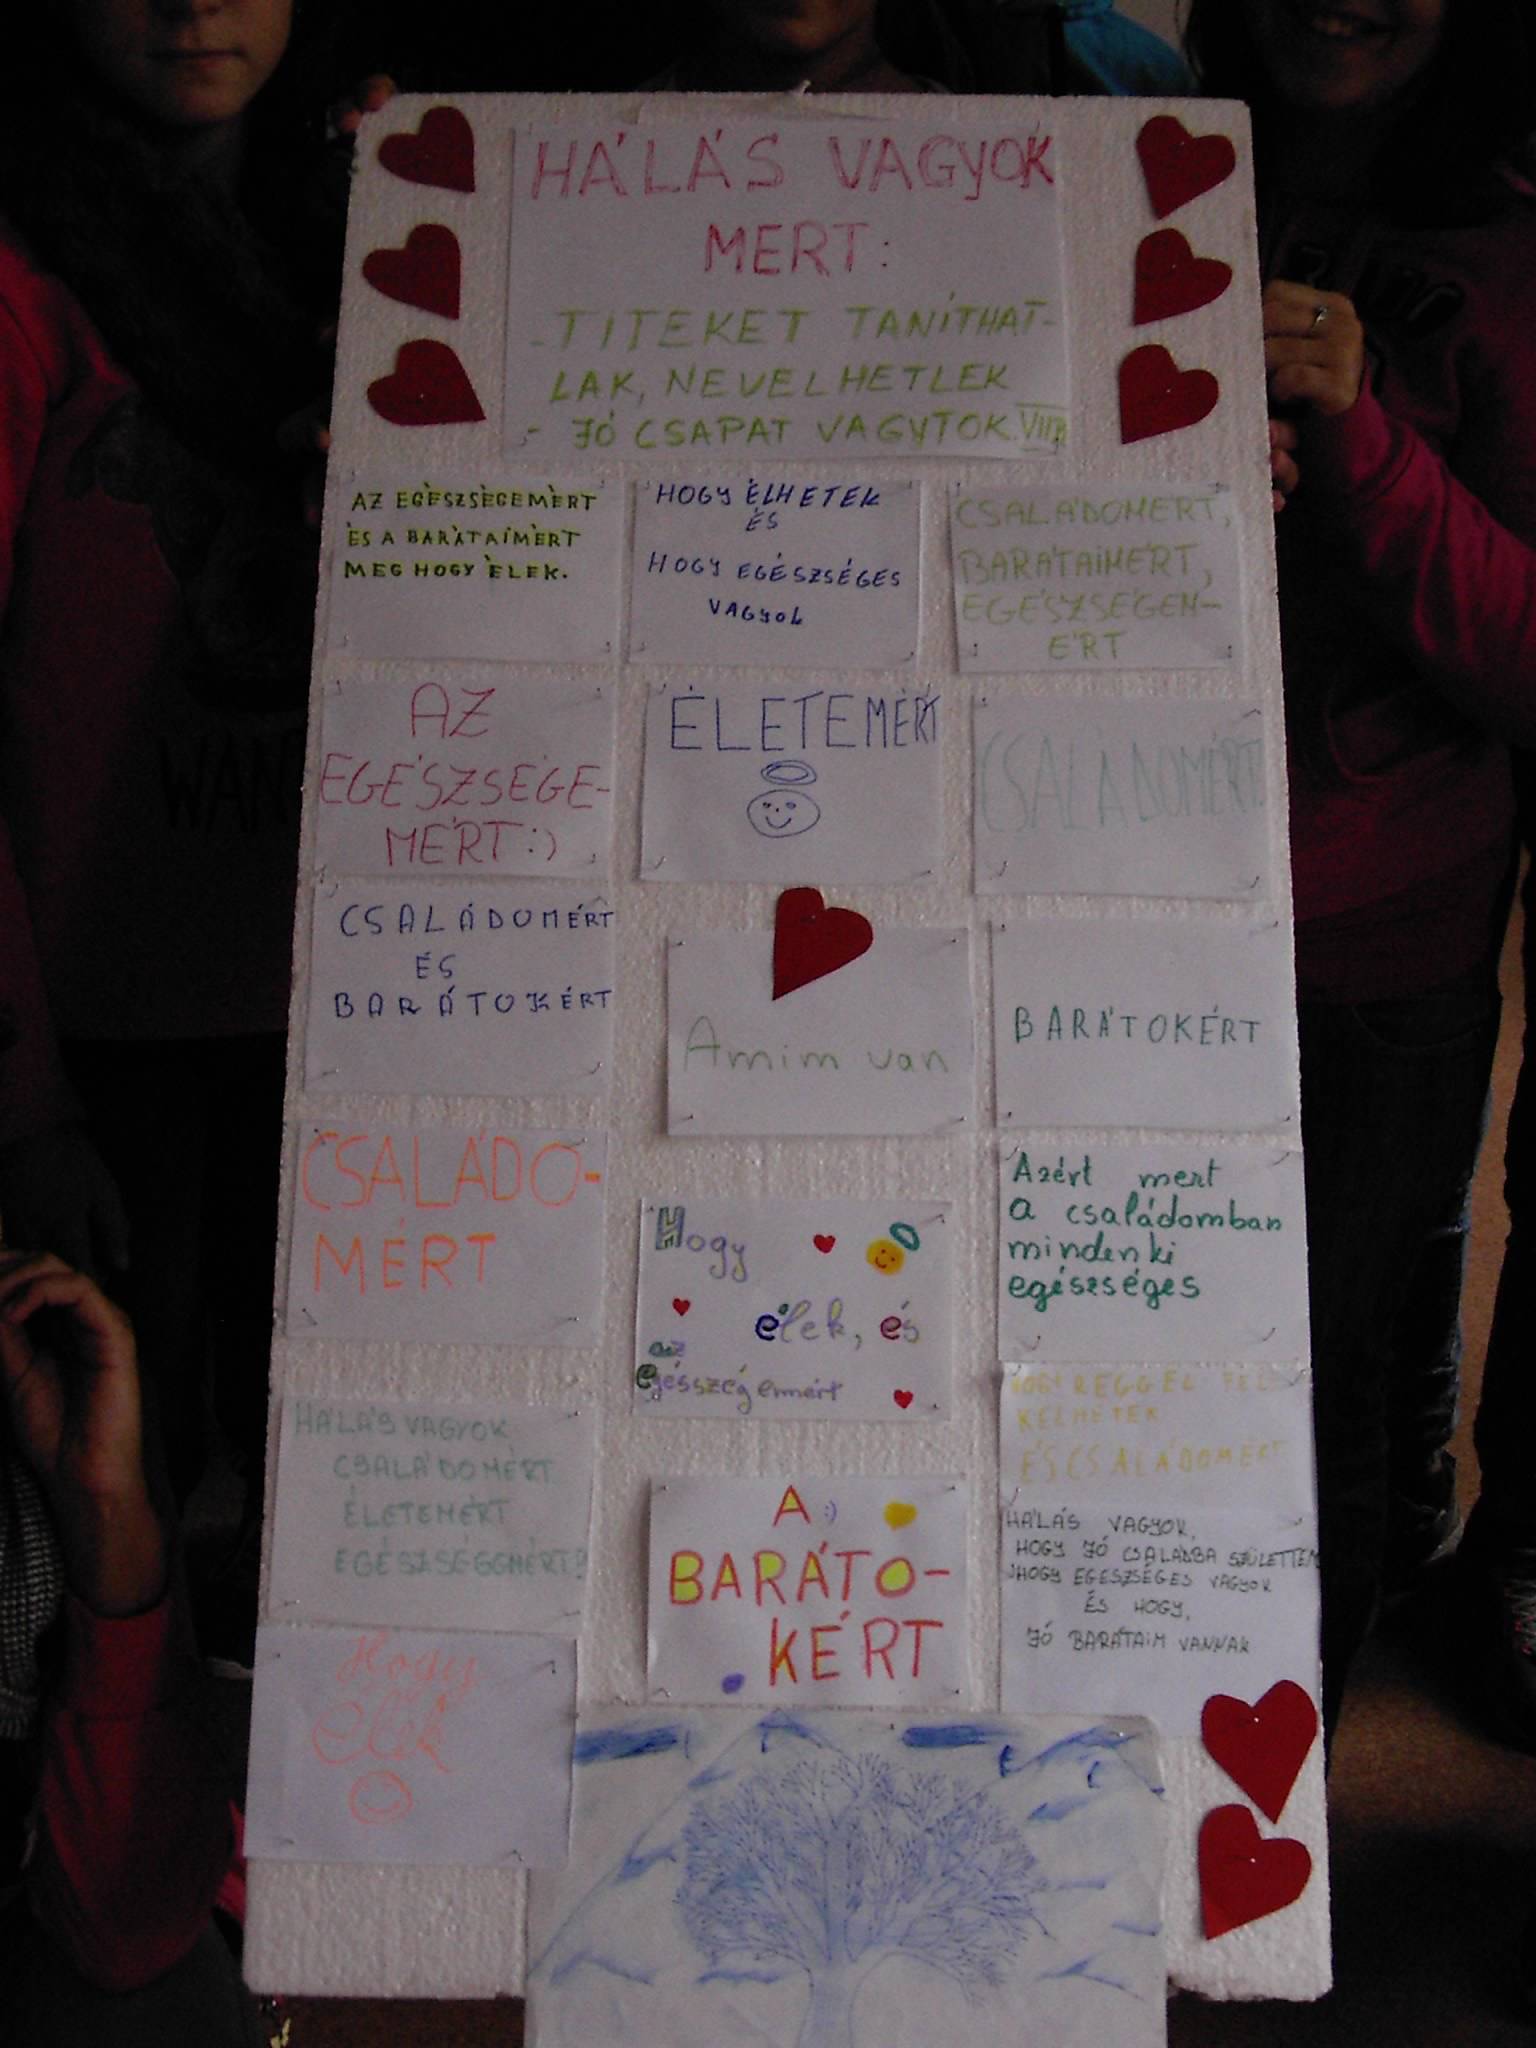 HÁLÁS VAGYOK
MERT:
- TITEKET TANÍTHAT-
LAK, NEVELHETLEK
- JÓ CSAPAT VAGYTOK.
AZ EGÉSZSÉGEMÉRT
ÉS A BARÁTAIMÉRT
MEG HOGY ÉLEK.
HOGY ÉLHETEK
ÉS
HOGY EGÉSZSÉGES
VAGYOK
CSALÁDOMÉRT,
BARÁTAIMÉRT,
EGÉSZSÉGEM-
ÉRT
AZ
EGÉSZSÉGE-
MÉRT :)
ÉLETEMÉRT
CSALÁDOMÉRT
CSALÁDOMÉRT
ÉS
BARÁTOKÉRT
Amim van
BARÁTOKÉRT
CSALÁDO-
MÉRT
Hogy
élek, és
az
egésszégemért
Azért mert
a családomban
mindenki
egészséges
HÁLÁS VAGYOK
CSALÁDOMÉRT
ÉLETEMÉRT
EGÉSZSÉGGMÉRT!
A :)
BARÁTO-
KÉRT
HOGY REGGEL FEL
KELHETEK
ÉS CSALÁDOMÉRT
HÁLÁS VAGYOK,
HOGY JÓ CSALÁDBA SZÜLETTEM
HOGY EGÉSZSÉGES VAGYOK
ÉS HOGY,
JÓ BARÁTAIM VANNAK
Hogy
Élek
WAN